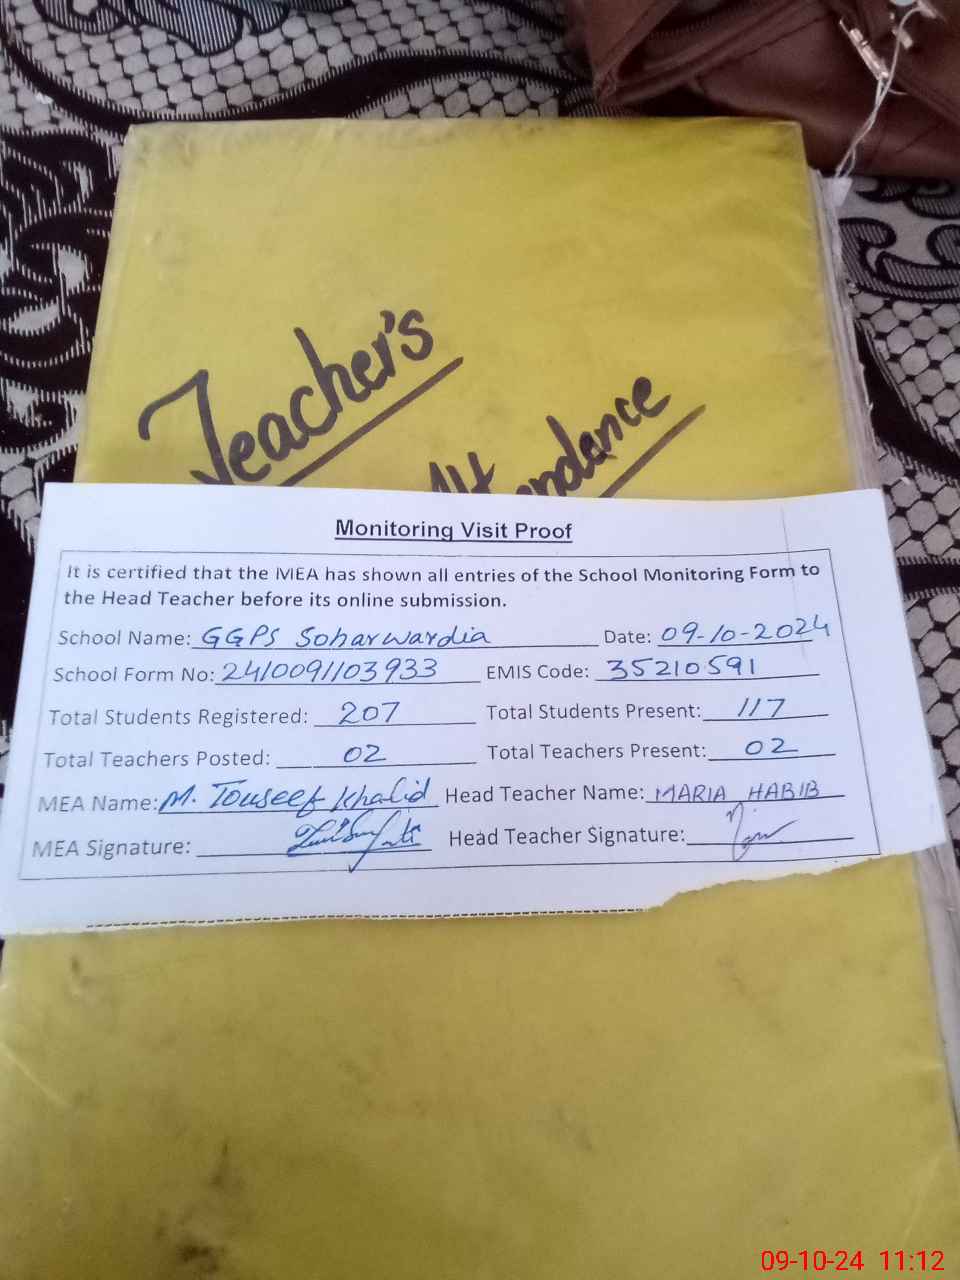 Teacher's
Attendance
Monitoring Visit Proof
It is certified that the MEA has shown all entries of the School Monitoring Form to
the Head Teacher before its online submission.
School Name: GGPS Soharwardia Date: 09-10-2024
School Form No: 2410091103933 EMIS Code: 35210591
Total Students Registered: 207 Total Students Present: 117
Total Teachers Posted: 02 Total Teachers Present: 02
MEA Name: M. Touseef Khalid Head Teacher Name: MARIA HABIB
MEA Signature: Head Teacher Signature:
09-10-24 11:12